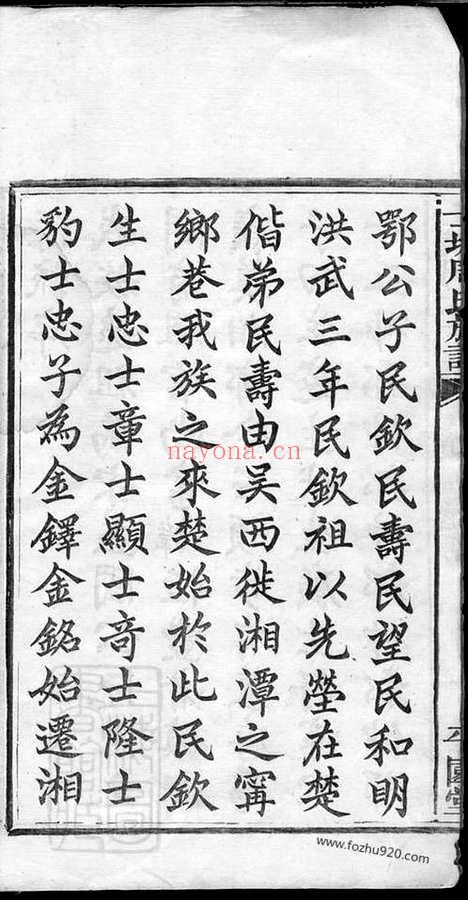 鄂公子民欽民壽民望民和明
洪武三年民欽祖以先塋在楚
偕弟民壽由吳西徙湘潭之甯
鄉巷我族之來楚始於此民欽
生士忠士章士顯士奇士隆士
豹士忠子為金鐸金銘始遷湘
nayona.cn
www.fozhu920.com